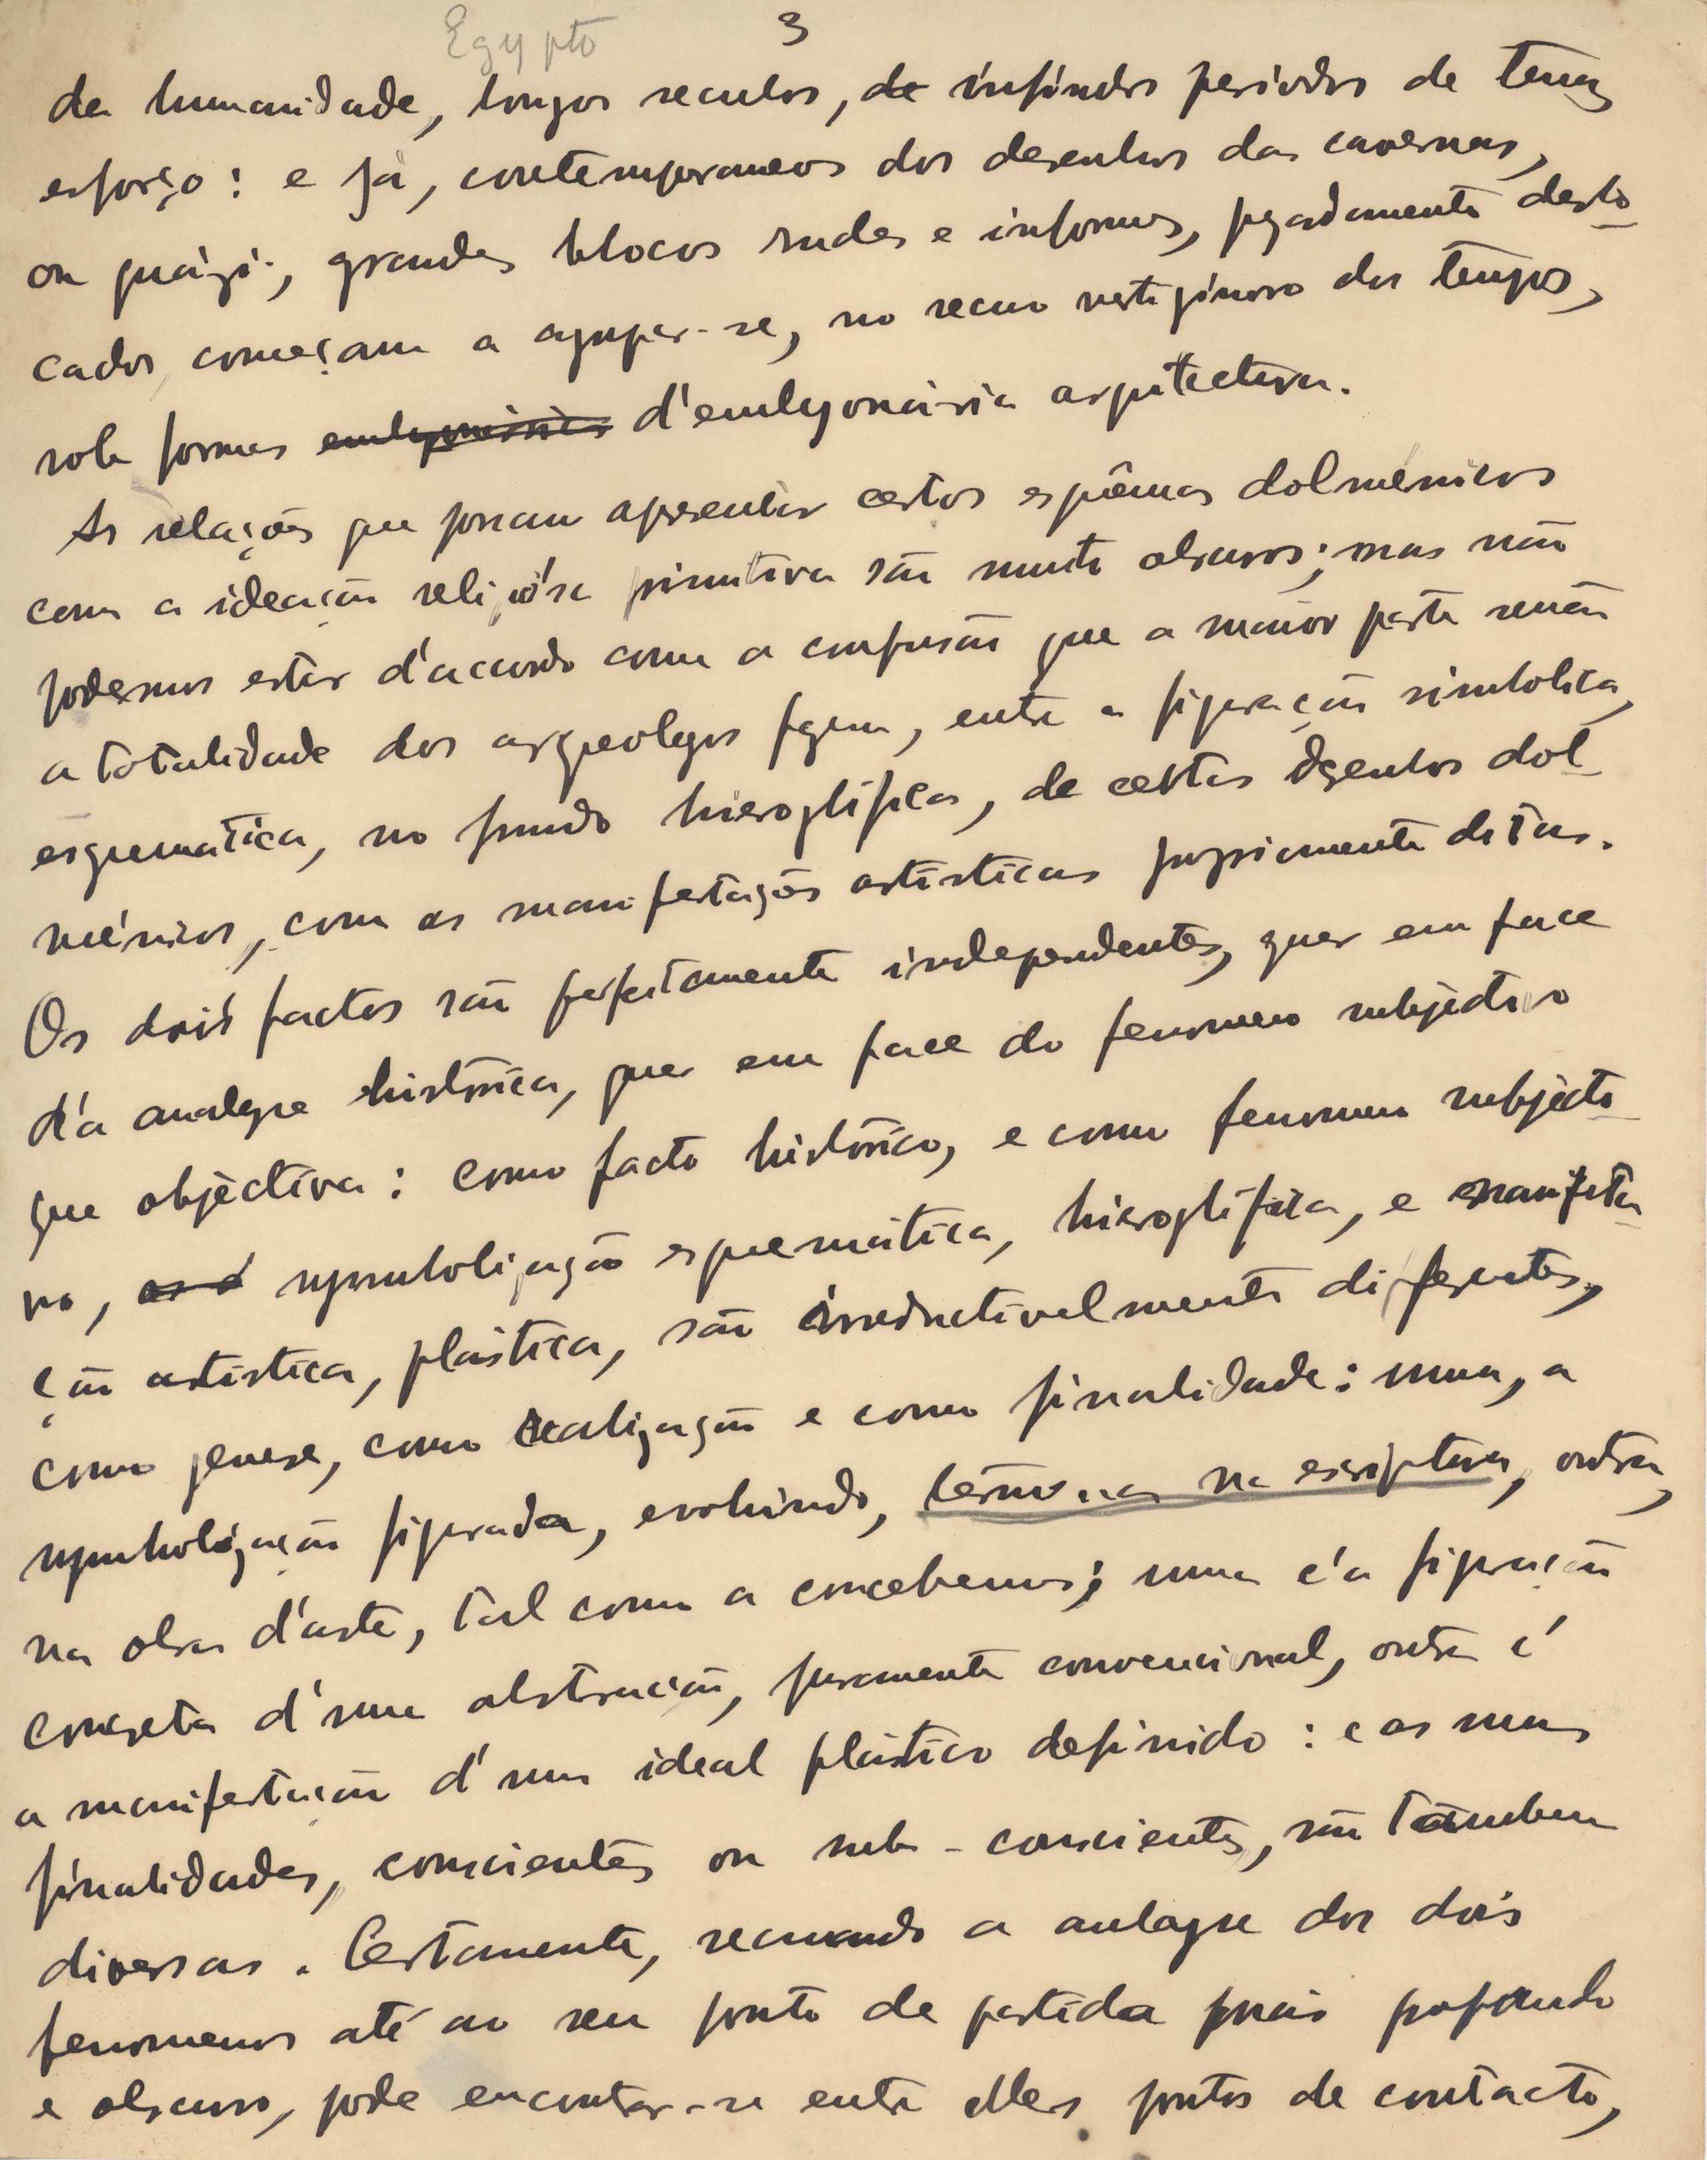 Egypto 3
da humanidade, longos seculos, de infindos periodos de tenaz
esforço: e já, contemporaneos dos desenhos das cavernas,
ou quási, grandes blocos rudes e informes, pezadamente deslo-
cados, começam a agrupar-se, no recuo vertiginoso dos tempos,
sob formas embryonárias d'embryonária arquitectura.
As relações que possam apresentar certos esquêmas dolménicos
com a ideação religiósa primitiva são muito obscuras; mas não
podemos estar d'accordo com a confusão que a maior parte senão
a totalidade dos arqueologos fazem, entre a figuração simbolica,
esquematica, no fundo hieroglífica, de certos desenhos dol-
ménicos, com as manifestações artisticas propriamente ditas.
Os dois factos são perfeitamente independentes, quer em face
d'a analyse histórica, quer em face do fenomeno subjectivo
que objectiva: como facto histórico, e como fenomeno subjecti-
vo, as d symbolização esquemática, hieroglífica, e manifesta-
ção artistica, plástica, são irreductivelmente differentes,
como genese, como realização e como finalidade: uma, a
symbolização figurada, evoluindo, termina na escriptura, outra,
na obra d'arte, tal como a concebemos; uma é a figuração
concreta d'uma abstracção, puramente convencional, outra é
a manifestação d'um ideal plástico definido: e as suas
finalidades, conscientes ou sub-conscientes, são tambem
diversas. Certamente, recuando a analyse dos dois
fenomenos até ao seu ponto de partida mais profundo
e obscuro, pode encontrar-se entre elles pontos de contacto,